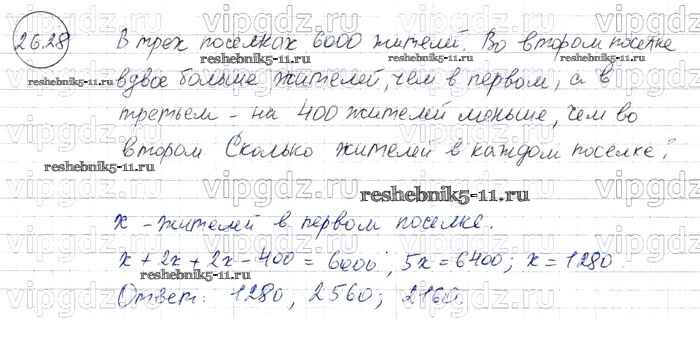 26.28
В трех поселках 6000 жителей. Во втором поселке
reshebnik5-11.ru reshebnik5-11.ru
вдвое больше жителей, чем в первом, а в
третьем - на 400 жителей меньше, чем во
втором Сколько жителей в каждом поселке?
reshebnik5-11.ru
reshebnik5-11.ru
x - жителей в первом поселке.
x + 2x + 2x - 400 = 6000; 5x = 6400; x = 1280.
reshebnik5-11.ru reshebnik5-11.ru
Ответ: 1280, 2560; 2160.
vipgdz.ru vipgdz.ru vipgdz.ru vipgdz.ru